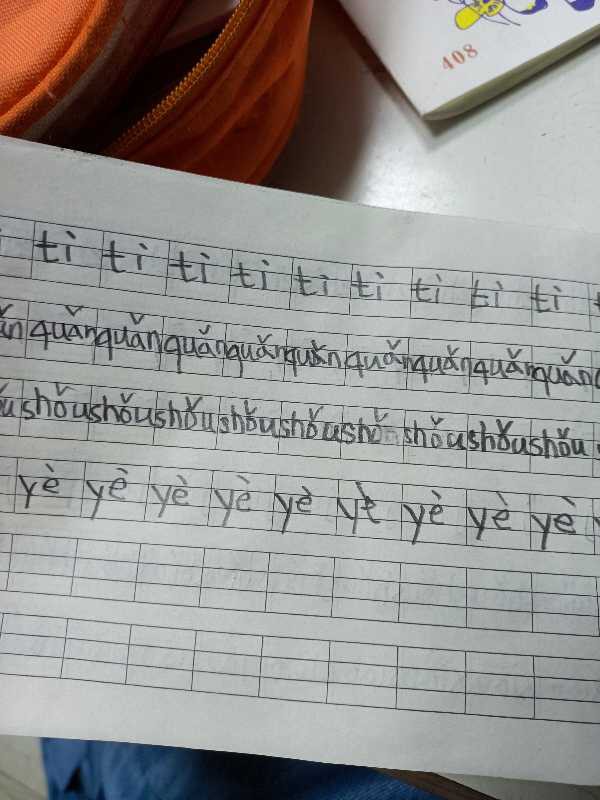 408
tì tì tì tì tì tì tì tì tì
quǎn quǎn quǎn quǎn quǎn quǎn quǎn quǎn quǎn
shǒu shǒu shǒu shǒu shǒu shǒu shǒu shǒu shǒu
yè yè yè yè yè yè yè yè yè